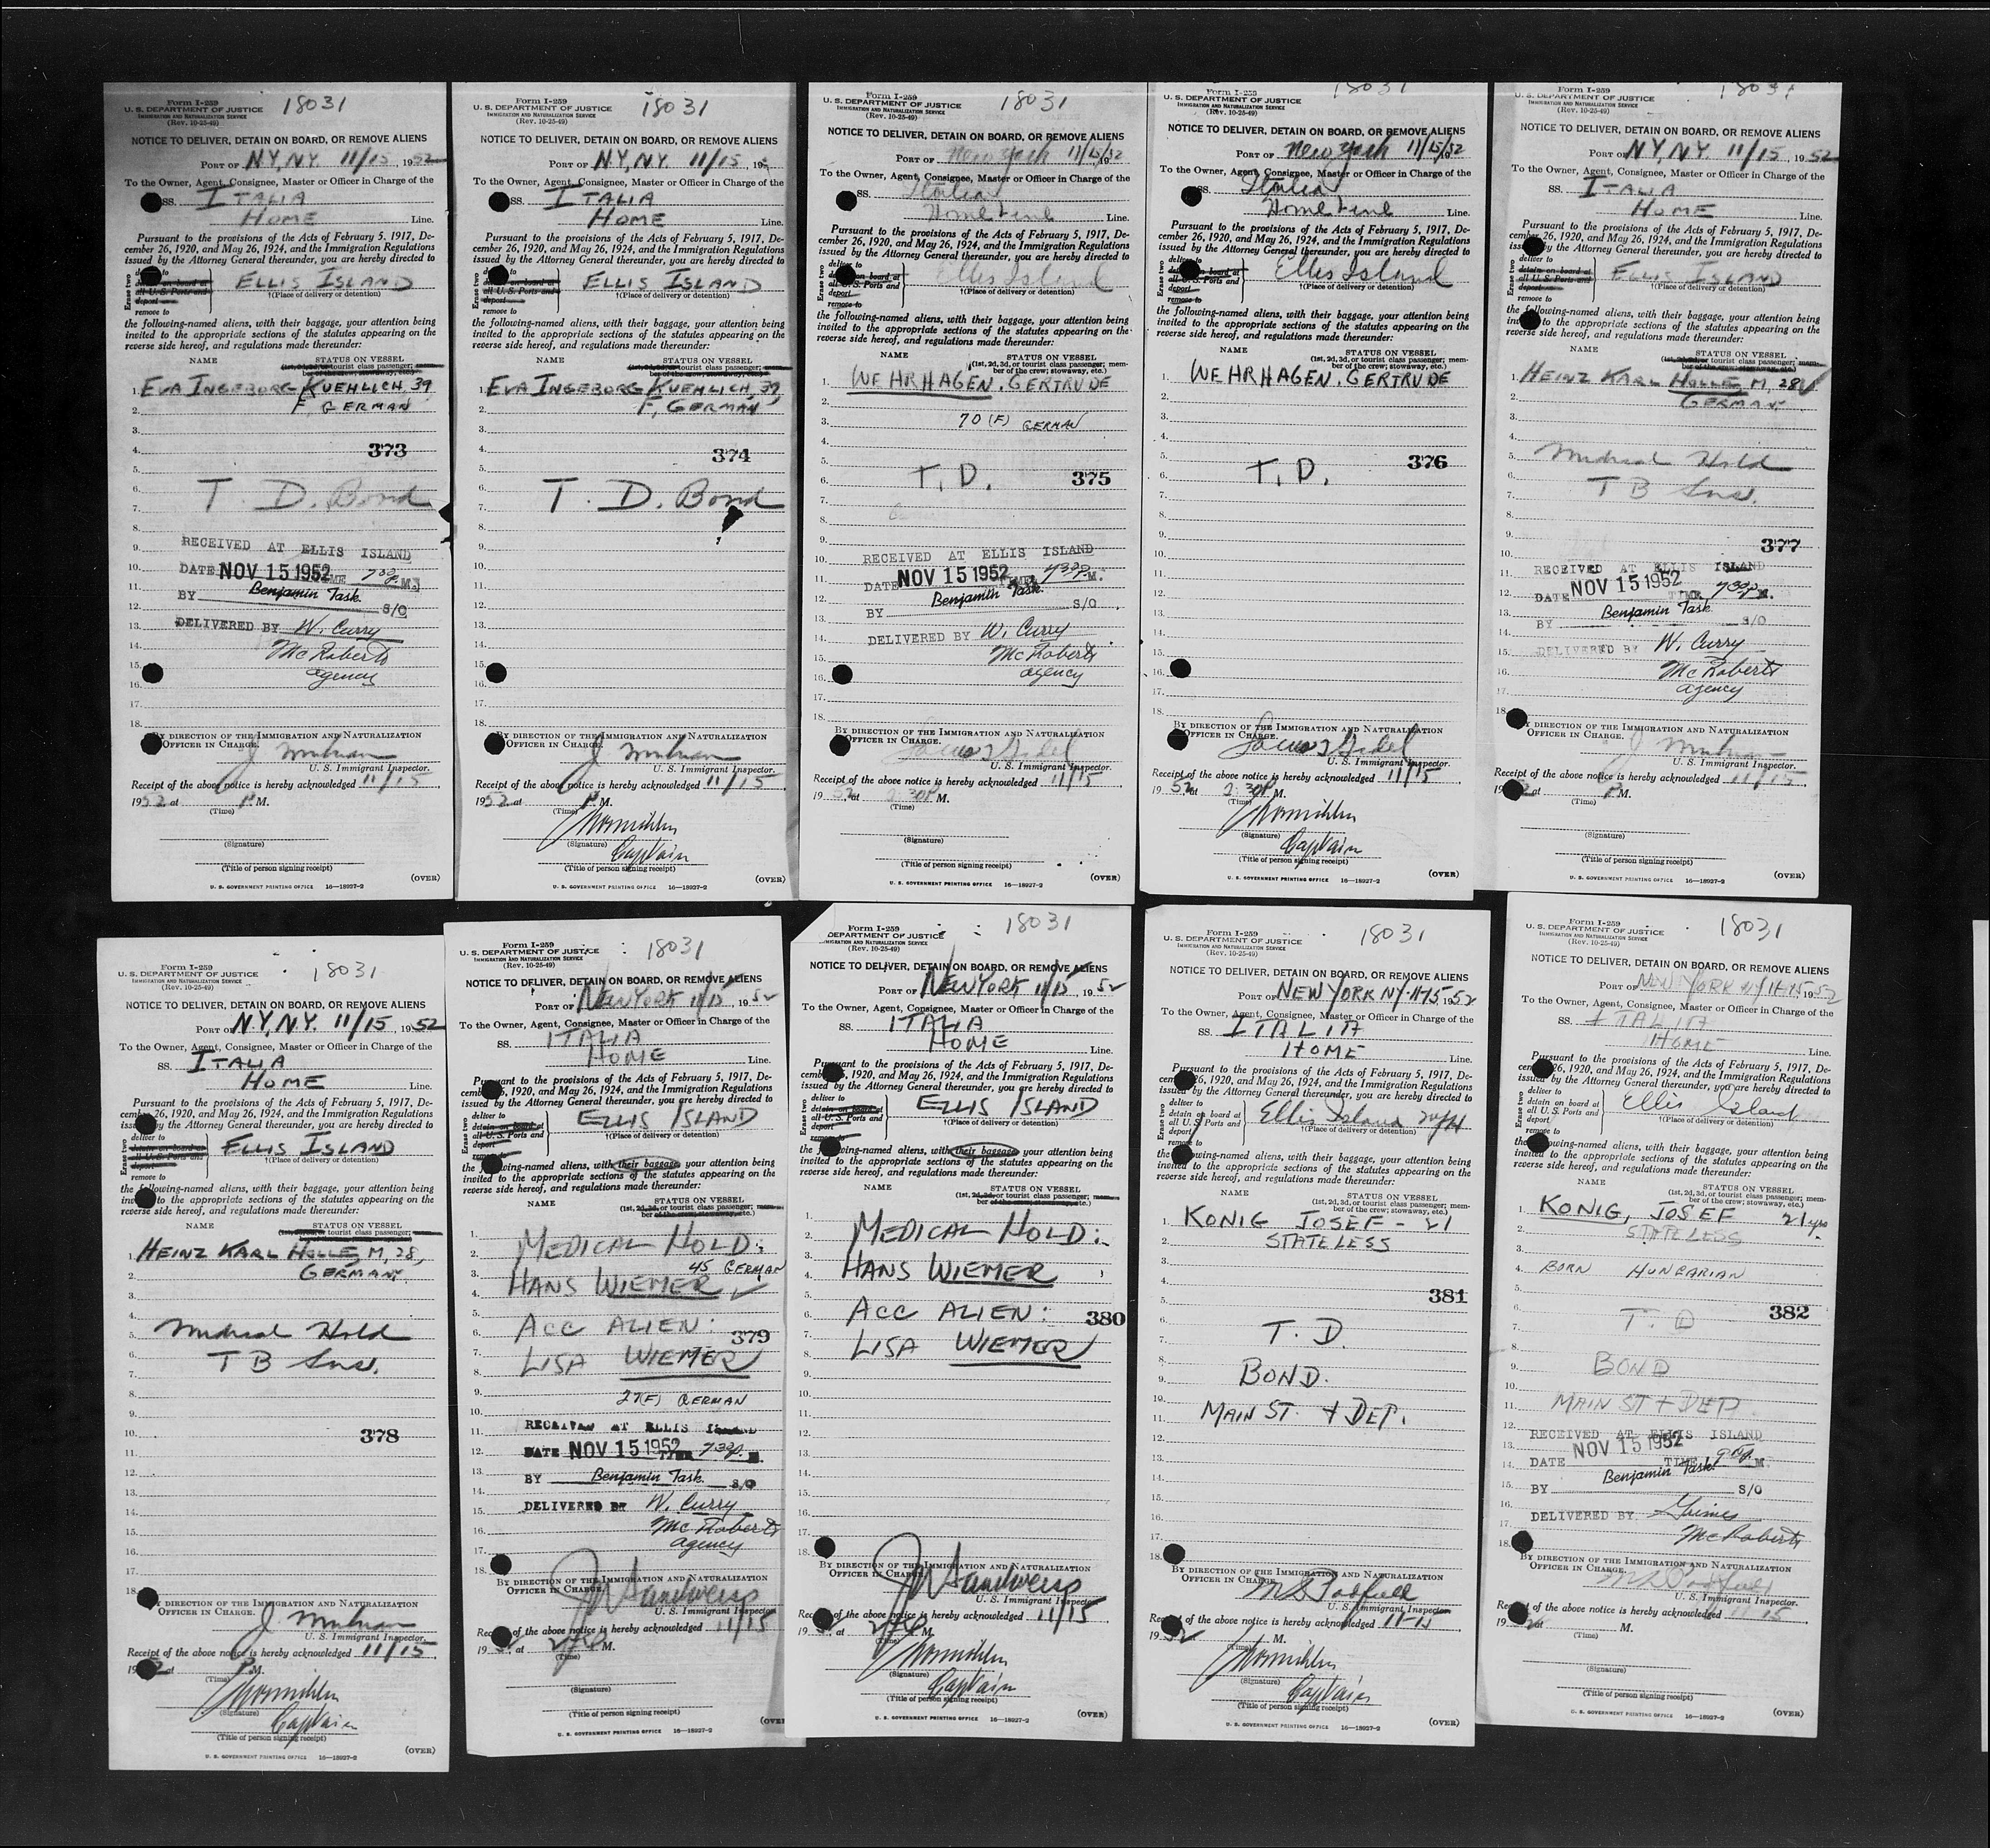 Form I-259
18031
U. S. DEPARTMENT OF JUSTICE
IMMIGRATION AND NATURALIZATION SERVICE
(Rev. 10-25-49)
NOTICE TO DELIVER, DETAIN ON BOARD, OR REMOVE ALIENS
PORT OF N.Y, N.Y. 11/15, 1952
To the Owner, Agent, Consignee, Master or Officer in Charge of the
SS. ITALIA
HOME Line.
Pursuant to the provisions of the Acts of February 5, 1917, De-
cember 26, 1920, and May 26, 1924, and the Immigration Regulations
issued by the Attorney General thereunder, you are hereby directed to
Erase two
detain on board at
all U. S. Ports and
deport
remove to
ELLIS ISLAND
†(Place of delivery or detention)
the following-named aliens, with their baggage, your attention being
invited to the appropriate sections of the statutes appearing on the
reverse side hereof, and regulations made thereunder:
NAME STATUS ON VESSEL
1. EVA INGEBORG KUEHLICH, 39,
2. F, GERMAN
3.
4.
373
5.
6.
T. D. Bond
7.
8.
9.
RECEIVED AT ELLIS ISLAND
10. DATE NOV 15 1952 TIME 730 P. M.
11. BY Benjamin Task S/O
12.
13. DELIVERED BY W. Curry
14. McRoberts
15. agency
16.
17.
18.
BY DIRECTION OF THE IMMIGRATION AND NATURALIZATION
OFFICER IN CHARGE.
U. S. Immigrant Inspector.
Receipt of the above notice is hereby acknowledged 11/15,
1952 at P M.
(Time)
(Signature)
(Title of person signing receipt)
U. S. GOVERNMENT PRINTING OFFICE 16—18927-2
(OVER)
Form I-259
18031
U. S. DEPARTMENT OF JUSTICE
IMMIGRATION AND NATURALIZATION SERVICE
(Rev. 10-25-49)
NOTICE TO DELIVER, DETAIN ON BOARD, OR REMOVE ALIENS
PORT OF N.Y, N.Y. 11/15, 195
To the Owner, Agent, Consignee, Master or Officer in Charge of the
SS. ITALIA
HOME Line.
Pursuant to the provisions of the Acts of February 5, 1917, De-
cember 26, 1920, and May 26, 1924, and the Immigration Regulations
issued by the Attorney General thereunder, you are hereby directed to
Erase two
detain on board at
all U. S. Ports and
deport
remove to
ELLIS ISLAND
†(Place of delivery or detention)
the following-named aliens, with their baggage, your attention being
invited to the appropriate sections of the statutes appearing on the
reverse side hereof, and regulations made thereunder:
NAME STATUS ON VESSEL
1. EVA INGEBORG KUEHLICH, 39,
2. F, GERMAN
3.
4.
374
5.
6.
T. D. Bond
7.
8.
9.
10.
11.
12.
13.
14.
15.
16.
17.
18.
BY DIRECTION OF THE IMMIGRATION AND NATURALIZATION
OFFICER IN CHARGE.
U. S. Immigrant Inspector.
Receipt of the above notice is hereby acknowledged 11/15,
1952 at P M.
(Time)
(Signature)
Captain
(Title of person signing receipt)
U. S. GOVERNMENT PRINTING OFFICE 16—18927-2
(OVER)
Form I-259
18031
U. S. DEPARTMENT OF JUSTICE
IMMIGRATION AND NATURALIZATION SERVICE
(Rev. 10-25-49)
NOTICE TO DELIVER, DETAIN ON BOARD, OR REMOVE ALIENS
PORT OF New York 11/15/52
To the Owner, Agent, Consignee, Master or Officer in Charge of the
SS. Italia
Home Line Line.
Pursuant to the provisions of the Acts of February 5, 1917, De-
cember 26, 1920, and May 26, 1924, and the Immigration Regulations
issued by the Attorney General thereunder, you are hereby directed to
Erase two
deliver to
detain on board at
all U. S. Ports and
deport
remove to
Ellis Island
†(Place of delivery or detention)
the following-named aliens, with their baggage, your attention being
invited to the appropriate sections of the statutes appearing on the
reverse side hereof, and regulations made thereunder:
NAME STATUS ON VESSEL
(1st, 2d, 3d, or tourist class passenger; mem-
ber of the crew; stowaway, etc.)
1. WEHRHAGEN, GERTRUDE
2.
3. 70 (F) GERMAN
4.
5.
6. T. D. 375
7.
8.
9.
10. RECEIVED AT ELLIS ISLAND
11. DATE NOV 15 1952 TIME 730 P. M.
12. BY Benjamin Task S/O
13.
14. DELIVERED BY W. Curry
15. McRoberts
16. agency
17.
18.
BY DIRECTION OF THE IMMIGRATION AND NATURALIZATION
OFFICER IN CHARGE.
U. S. Immigrant Inspector.
Receipt of the above notice is hereby acknowledged 11/15,
1952 at 2:30 P M.
(Time)
(Signature)
(Title of person signing receipt)
U. S. GOVERNMENT PRINTING OFFICE 16—18927-2
(OVER)
Form I-259
18031
U. S. DEPARTMENT OF JUSTICE
IMMIGRATION AND NATURALIZATION SERVICE
(Rev. 10-25-49)
NOTICE TO DELIVER, DETAIN ON BOARD, OR REMOVE ALIENS
PORT OF New York 11/15/52
To the Owner, Agent, Consignee, Master or Officer in Charge of the
SS. Italia
Home Line Line.
Pursuant to the provisions of the Acts of February 5, 1917, De-
cember 26, 1920, and May 26, 1924, and the Immigration Regulations
issued by the Attorney General thereunder, you are hereby directed to
Erase two
on board at
all U. S. Ports and
deport
remove to
Ellis Island
†(Place of delivery or detention)
the following-named aliens, with their baggage, your attention being
invited to the appropriate sections of the statutes appearing on the
reverse side hereof, and regulations made thereunder:
NAME STATUS ON VESSEL
(1st, 2d, 3d, or tourist class passenger; mem-
ber of the crew; stowaway, etc.)
1. WEHRHAGEN, GERTRUDE
2.
3.
4.
5. T. D. 376
6.
7.
8.
9.
10.
11.
12.
13.
14.
15.
16.
17.
18.
BY DIRECTION OF THE IMMIGRATION AND NATURALIZATION
OFFICER IN CHARGE.
U. S. Immigrant Inspector.
Receipt of the above notice is hereby acknowledged 11/15
1952 at 2:30 P M.
(Time)
(Signature)
Captain
(Title of person signing receipt)
U. S. GOVERNMENT PRINTING OFFICE 16—18927-2
(OVER)
Form I-259
18031
U. S. DEPARTMENT OF JUSTICE
IMMIGRATION AND NATURALIZATION SERVICE
(Rev. 10-25-49)
NOTICE TO DELIVER, DETAIN ON BOARD, OR REMOVE ALIENS
PORT OF N.Y, N.Y. 11/15, 1952
To the Owner, Agent, Consignee, Master or Officer in Charge of the
SS. ITALIA
HOME Line.
Pursuant to the provisions of the Acts of February 5, 1917, De-
cember 26, 1920, and May 26, 1924, and the Immigration Regulations
issued by the Attorney General thereunder, you are hereby directed to
Erase two
deliver to
detain on board at
all U. S. Ports and
deport
remove to
ELLIS ISLAND
†(Place of delivery or detention)
the following-named aliens, with their baggage, your attention being
invited to the appropriate sections of the statutes appearing on the
reverse side hereof, and regulations made thereunder:
NAME STATUS ON VESSEL
1. HEINZ KARL HOLLE, M, 28,
2. GERMAN.
3.
4.
5. Medical Hold
6. T B Sus.
7.
8.
9. 377
10. RECEIVED AT ELLIS ISLAND
11. DATE NOV 15 1952 TIME 730 P. M.
12. Benjamin Task
13. BY S/O
14. W. Curry
15. DELIVERED BY
16. McRoberts
17. agency
18.
BY DIRECTION OF THE IMMIGRATION AND NATURALIZATION
OFFICER IN CHARGE.
U. S. Immigrant Inspector.
Receipt of the above notice is hereby acknowledged 11/15,
1952 at P M.
(Time)
(Signature)
(Title of person signing receipt)
U. S. GOVERNMENT PRINTING OFFICE 16—18927-2
(OVER)
Form I-259
18031
U. S. DEPARTMENT OF JUSTICE
IMMIGRATION AND NATURALIZATION SERVICE
(Rev. 10-25-49)
NOTICE TO DELIVER, DETAIN ON BOARD, OR REMOVE ALIENS
PORT OF N.Y, N.Y. 11/15, 1952
To the Owner, Agent, Consignee, Master or Officer in Charge of the
SS. ITALIA
HOME Line.
Pursuant to the provisions of the Acts of February 5, 1917, De-
cember 26, 1920, and May 26, 1924, and the Immigration Regulations
issued by the Attorney General thereunder, you are hereby directed to
Erase two
deliver to
detain on board at
all U. S. Ports and
deport
remove to
ELLIS ISLAND
†(Place of delivery or detention)
the following-named aliens, with their baggage, your attention being
invited to the appropriate sections of the statutes appearing on the
reverse side hereof, and regulations made thereunder:
NAME STATUS ON VESSEL
1. HEINZ KARL HOLLE, M, 28,
2. GERMAN.
3.
4.
5. Medical Hold
6. T B Sus.
7.
8.
9.
10. 378
11.
12.
13.
14.
15.
16.
17.
18.
BY DIRECTION OF THE IMMIGRATION AND NATURALIZATION
OFFICER IN CHARGE.
U. S. Immigrant Inspector.
Receipt of the above notice is hereby acknowledged 11/15,
1952 at P M.
(Time)
(Signature)
Captain
(Title of person signing receipt)
U. S. GOVERNMENT PRINTING OFFICE 16—18927-2
(OVER)
Form I-259
18031
U. S. DEPARTMENT OF JUSTICE
IMMIGRATION AND NATURALIZATION SERVICE
(Rev. 10-25-49)
NOTICE TO DELIVER, DETAIN ON BOARD, OR REMOVE ALIENS
PORT OF NEW YORK 11/15, 1952
To the Owner, Agent, Consignee, Master or Officer in Charge of the
SS. ITALIA
HOME Line.
Pursuant to the provisions of the Acts of February 5, 1917, De-
cember 26, 1920, and May 26, 1924, and the Immigration Regulations
issued by the Attorney General thereunder, you are hereby directed to
Erase two
deliver to
detain on board at
all U. S. Ports and
deport
remove to
ELLIS ISLAND
†(Place of delivery or detention)
the following-named aliens, with their baggage, your attention being
invited to the appropriate sections of the statutes appearing on the
reverse side hereof, and regulations made thereunder:
NAME STATUS ON VESSEL
(1st, 2d, 3d, or tourist class passenger; mem-
ber of the crew; stowaway, etc.)
1.
2. MEDICAL HOLD:
3. 45 GERMAN
4. HANS WIEMER ✓
5.
6. ACC ALIEN:
379
7.
8. LISA WIEMER
9. 27(F) GERMAN
10.
11. RECEIVED AT ELLIS ISLAND
12. DATE NOV 15 1952 TIME 730 P. M.
13. BY Benjamin Task S/O
14.
15. DELIVERED BY W. Curry
16. McRoberts
17. agency
18.
BY DIRECTION OF THE IMMIGRATION AND NATURALIZATION
OFFICER IN CHARGE.
U. S. Immigrant Inspector
Receipt of the above notice is hereby acknowledged 11/15
1952, at M.
(Time)
(Signature)
(Title of person signing receipt)
U. S. GOVERNMENT PRINTING OFFICE 16—18927-2
(OVER
Form I-259
18031
DEPARTMENT OF JUSTICE
IMMIGRATION AND NATURALIZATION SERVICE
(Rev. 10-25-49)
NOTICE TO DELIVER, DETAIN ON BOARD, OR REMOVE ALIENS
PORT OF NEW YORK 11/15, 1952
To the Owner, Agent, Consignee, Master or Officer in Charge of the
SS. ITALIA
HOME Line.
Pursuant to the provisions of the Acts of February 5, 1917, De-
cember 26, 1920, and May 26, 1924, and the Immigration Regulations
issued by the Attorney General thereunder, you are hereby directed to
Erase two
deliver to
detain on board at
all U. S. Ports and
deport
remove to
ELLIS ISLAND
†(Place of delivery or detention)
the following-named aliens, with their baggage, your attention being
invited to the appropriate sections of the statutes appearing on the
reverse side hereof, and regulations made thereunder:
NAME STATUS ON VESSEL
(1st, 2d, 3d, or tourist class passenger; mem-
ber of the crew; stowaway, etc.)
1.
2. MEDICAL HOLD:
3.
4. HANS WIEMER
5.
6. ACC ALIEN: 380
7.
8. LISA WIEMER
9.
10.
11.
12.
13.
14.
15.
16.
17.
18.
BY DIRECTION OF THE IMMIGRATION AND NATURALIZATION
OFFICER IN CHARGE.
U. S. Immigrant Inspector.
Receipt of the above notice is hereby acknowledged 11/15
19 at M.
(Time)
(Signature)
Captain
(Title of person signing receipt)
U. S. GOVERNMENT PRINTING OFFICE 16—18927-2
(OVER)
Form I-259
18031
U. S. DEPARTMENT OF JUSTICE
IMMIGRATION AND NATURALIZATION SERVICE
(Rev. 10-25-49)
NOTICE TO DELIVER, DETAIN ON BOARD, OR REMOVE ALIENS
PORT OF NEW YORK NY 11-15 1952
To the Owner, Agent, Consignee, Master or Officer in Charge of the
SS. ITALIA
HOME Line.
Pursuant to the provisions of the Acts of February 5, 1917, De-
cember 26, 1920, and May 26, 1924, and the Immigration Regulations
issued by the Attorney General thereunder, you are hereby directed to
Erase two
deliver to
detain on board at
all U. S. Ports and
deport
remove to
Ellis Island NYH
†(Place of delivery or detention)
the following-named aliens, with their baggage, your attention being
invited to the appropriate sections of the statutes appearing on the
reverse side hereof, and regulations made thereunder:
NAME STATUS ON VESSEL
(1st, 2d, 3d, or tourist class passenger; mem-
ber of the crew; stowaway, etc.)
1. KONIG JOSEF - 21
2. STATELESS
3.
4.
5. 381
6.
7. T. D
8.
9. BOND.
10.
11. MAIN ST. + DEP.
12.
13.
14.
15.
16.
17.
18.
BY DIRECTION OF THE IMMIGRATION AND NATURALIZATION
OFFICER IN CHARGE.
U. S. Immigrant Inspector
Receipt of the above notice is hereby acknowledged 11-15
1952 M.
(Time)
(Signature)
Captain
(Title of person signing receipt)
U. S. GOVERNMENT PRINTING OFFICE 16—18927-2
(OVER)
Form I-259
18031
U. S. DEPARTMENT OF JUSTICE
IMMIGRATION AND NATURALIZATION SERVICE
(Rev. 10-25-49)
NOTICE TO DELIVER, DETAIN ON BOARD, OR REMOVE ALIENS
PORT OF NEW YORK NY 11-15 1952
To the Owner, Agent, Consignee, Master or Officer in Charge of the
SS. ITALIA
HOME Line.
Pursuant to the provisions of the Acts of February 5, 1917, De-
cember 26, 1920, and May 26, 1924, and the Immigration Regulations
issued by the Attorney General thereunder, you are hereby directed to
Erase two
deliver to
detain on board at
all U. S. Ports and
deport
remove to
Ellis Island
†(Place of delivery or detention)
the following-named aliens, with their baggage, your attention being
invited to the appropriate sections of the statutes appearing on the
reverse side hereof, and regulations made thereunder:
NAME STATUS ON VESSEL
(1st, 2d, 3d, or tourist class passenger; mem-
ber of the crew; stowaway, etc.)
1. KONIG, JOSEF 21 yrs.
2. STATELESS
3.
4. BORN HUNGARIAN
5.
6. T. D 382
7.
8.
9. BOND
10.
11. MAIN ST + DEP.
12.
13. RECEIVED AT ELLIS ISLAND
14. DATE NOV 15 1952 TIME M.
Benjamin Task
15. BY S/O
16.
17. DELIVERED BY Grimes
18. McRoberts
BY DIRECTION OF THE IMMIGRATION AND NATURALIZATION
OFFICER IN CHARGE.
U. S. Immigrant Inspector.
Receipt of the above notice is hereby acknowledged 11 15
19 at M.
(Time)
(Signature)
(Title of person signing receipt)
U. S. GOVERNMENT PRINTING OFFICE 16—18927-2
(OVER)